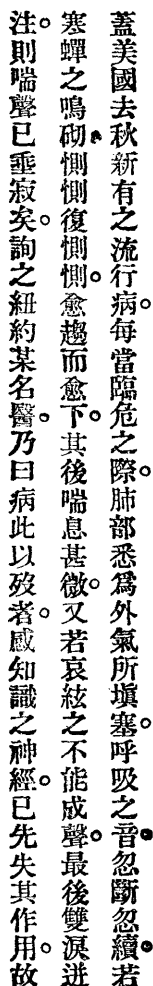 蓋美國去秋新有之流行病。每當臨危之際。肺部悉爲外氣所塡塞。呼吸之音。忽斷忽續。若
寒蟬之鳴砌。惻惻復惻惻。愈趨而愈下。其後喘息甚微。又若哀絃之不能成聲。最後雙淚迸
注。則喘聲已垂寂矣。詢之紐約某名醫。乃曰病此以歿者。感知識之神經。已先失其作用。故